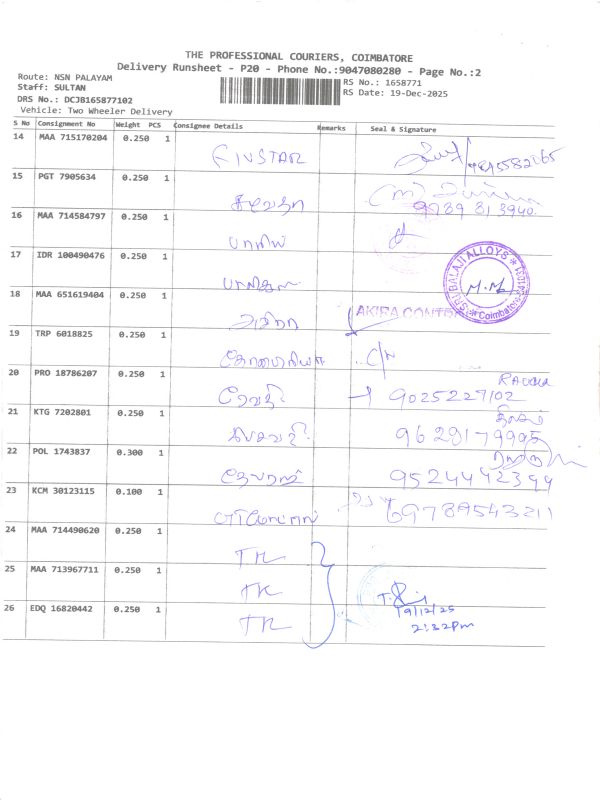 THE PROFESSIONAL COURIERS, COIMBATORE
Delivery Runsheet - P20 - Phone No.:9047080280 - Page No.:2
Route: NSN PALAYAM
RS No.: 1658771
Staff: SULTAN
RS Date: 19-Dec-2025
DRS No.: DCJB165877102
Vehicle: Two Wheeler Delivery
S No Consignment No Weight PCS Consignee Details Remarks Seal & Signature
14 MAA 715170204 0.250 1 FINSTAR
15 PGT 7905634 0.250 1
9789 813940
16 MAA 714584797 0.250 1
17 IDR 100490476 0.250 1
SRI BALAJI ALLOYS * Coimbatore
M.M
18 MAA 651619404 0.250 1 AKIRA CONTR
19 TRP 6018825 0.250 1 C/N
20 PRO 18786207 0.250 1 ரேவதி 9025227102
21 KTG 7202801 0.250 1 9629179995
22 POL 1743837 0.300 1 தேவராஜ் 9524442399
23 KCM 30123115 0.100 1 9789543211
24 MAA 714490620 0.250 1 TK
25 MAA 713967711 0.250 1 TK
26 EDQ 16820442 0.250 1 TK
19/12/25
2:32pm